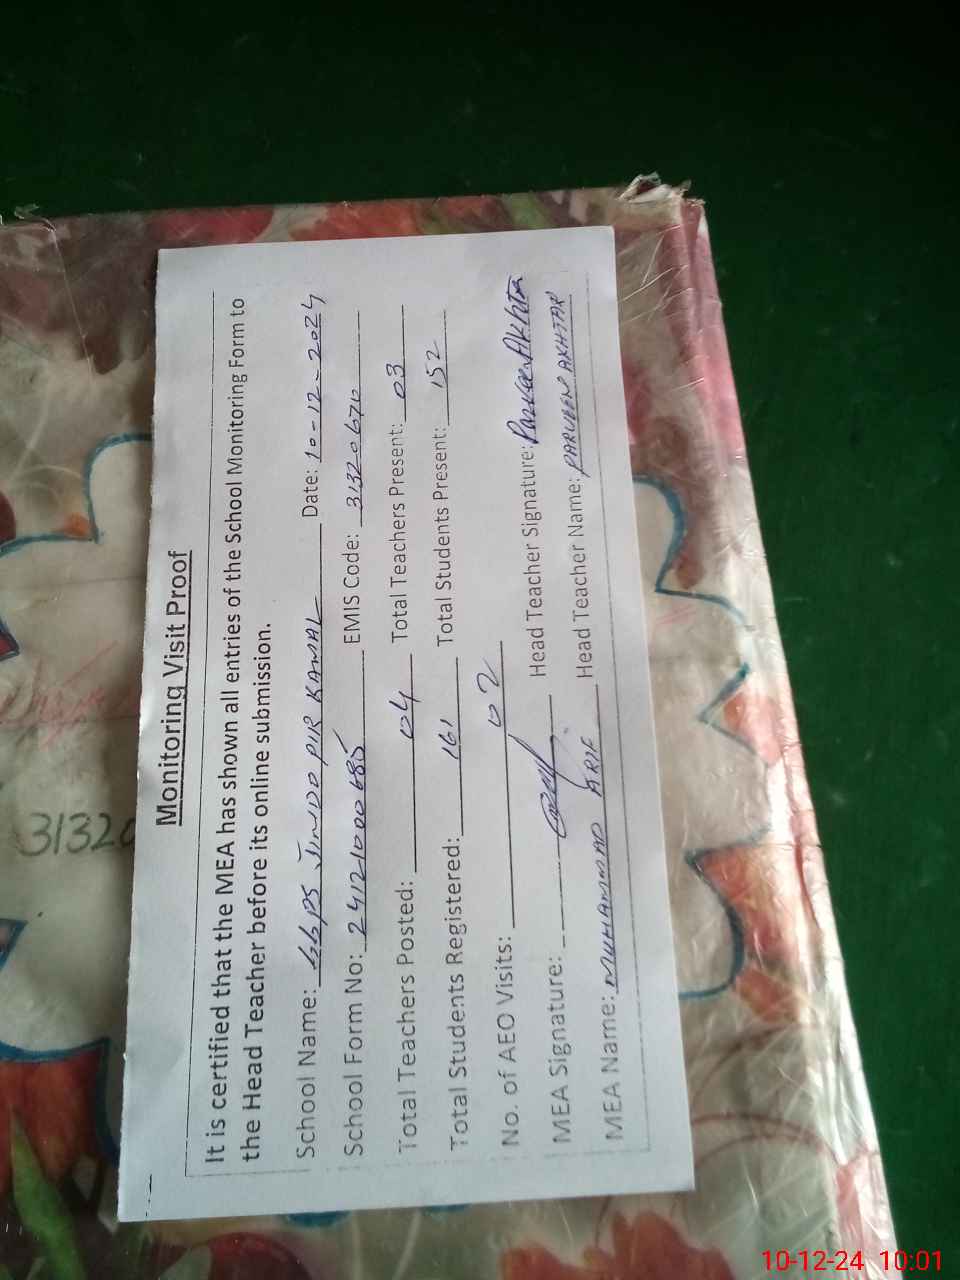 Monitoring Visit Proof
It is certified that the MEA has shown all entries of the School Monitoring Form to
the Head Teacher before its online submission.
School Name: GGPS JINDO PIR KAMAL Date: 10-12-2024
School Form No: 24121000685 EMIS Code: 31320670
Total Teachers Posted: 04 Total Teachers Present: 03
Total Students Registered: 161 Total Students Present: 152
No. of AEO Visits: 02
MEA Signature: Head Teacher Signature: Akhtar
MEA Name: MUHAMMAD ARIF Head Teacher Name: PARVEEN AKHTAR
3132
10-12-24 10:01